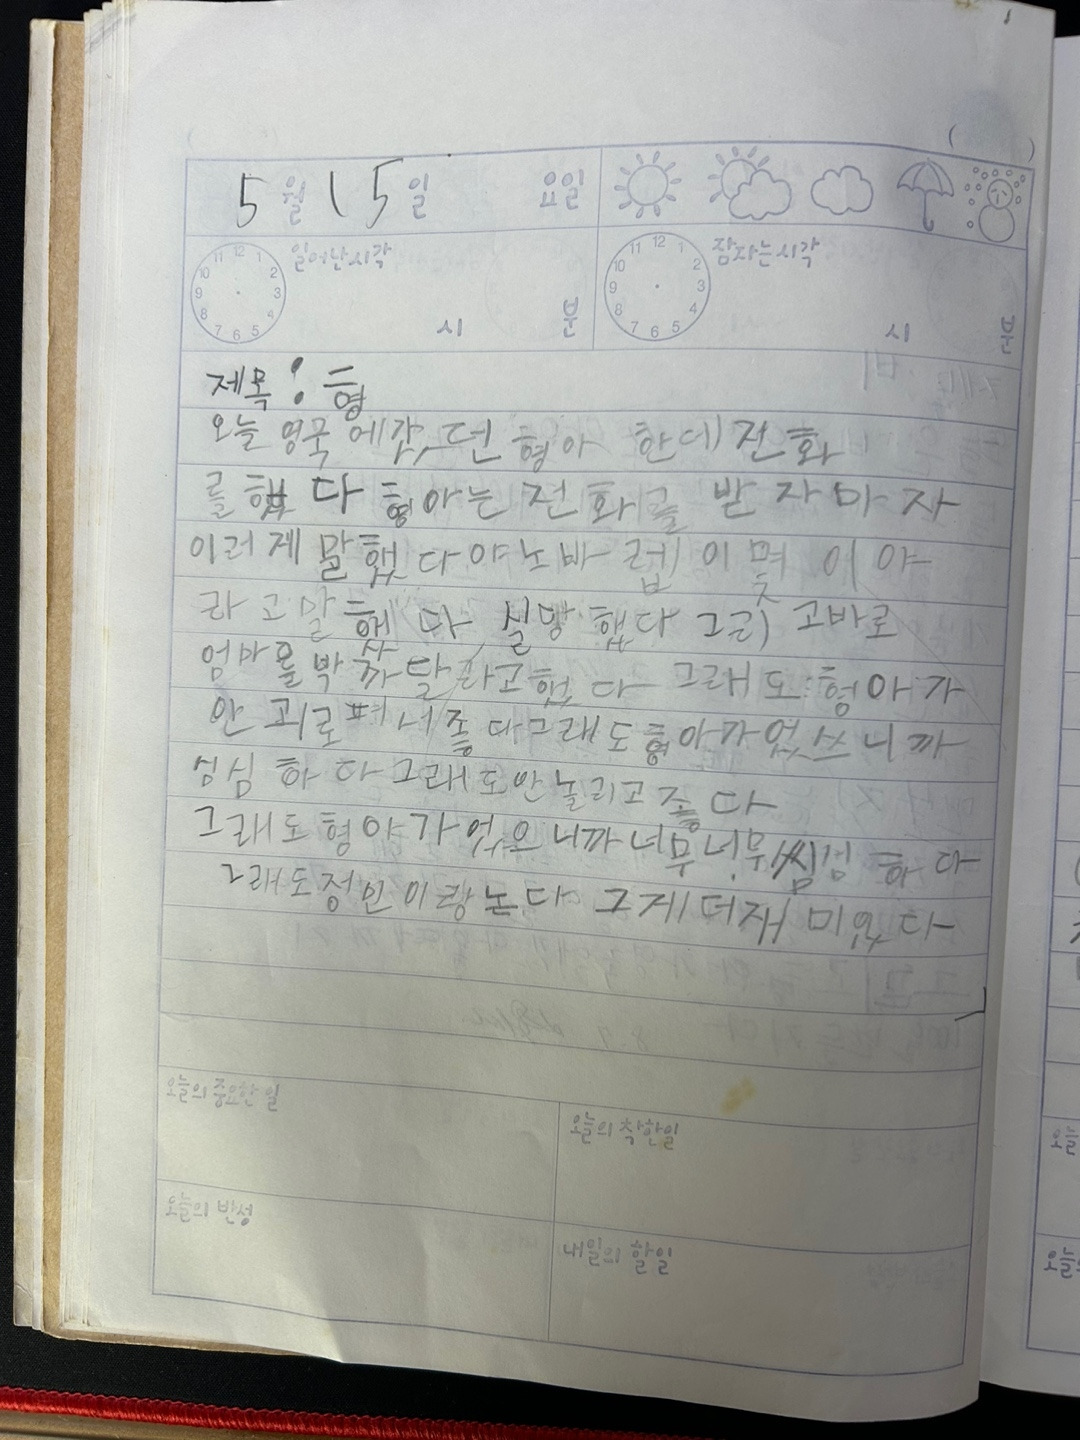 5월 15일 요일
일어난시각 시 분 잠자는시각 시 분
11 12 1 10 2 9 3 8 4 7 6 5
11 12 1 10 2 9 3 8 4 7 6 5
제목: 형
오늘 영국에갔던 형아 한테 전화
를 했다 형아는 전화를 받자마자
이러게 말했다 야 노바 렙이 몇이야
라고말했다 실망했다 그리고바로
엄마를 박까달라고했다 그래도 형아가
안 괴로펴서좋다그래도형아가없쓰니까
심심하다그래도안놀리고좋다
그래도형아가없으니까너무너무씸심하다
그래도정인이랑논다 그게더재미있다
오늘의 중요한 일
오늘의 착한일
오늘의 반성
내일의 할일